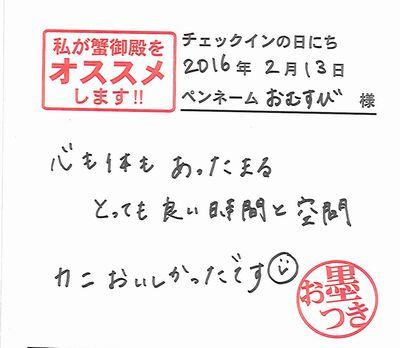 私が蟹御殿を
オススメ
します!!
チェックインの日にち
2016年2月13日
ペンネーム おむすび 様
心も体も あったまる
とっても良い時間と空間
カニおいしかったです
お墨つき